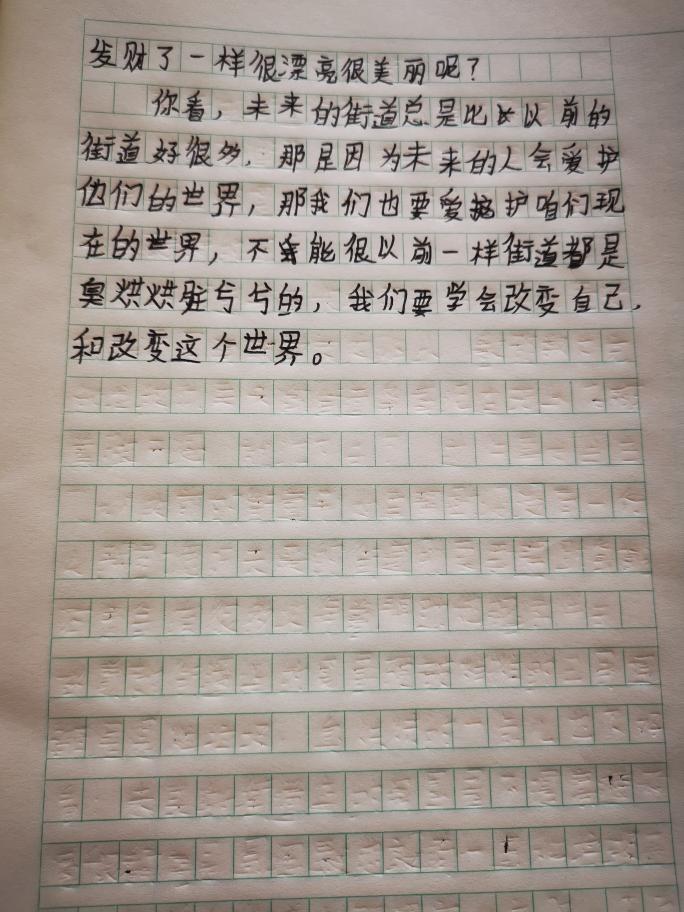 发财了一样很漂亮很美丽呢?
你看,未来的街道总是比以前的
街道好很多,那是因为未来的人会爱护
他们的世界,那我们也要爱护咱们现
在的世界,不能很以前一样街道都是
臭烘烘脏兮兮的,我们要学会改变自己,
和改变这个世界。